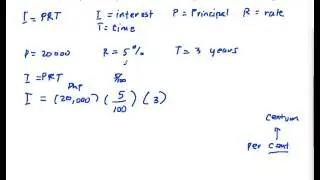 I = PRT I = interest P = Principal R = rate
T = time
P = 20000 R = 5% T = 3 years
I = PRT 5/100
I = (20,000) (5/100) (3)
Centum
per cent